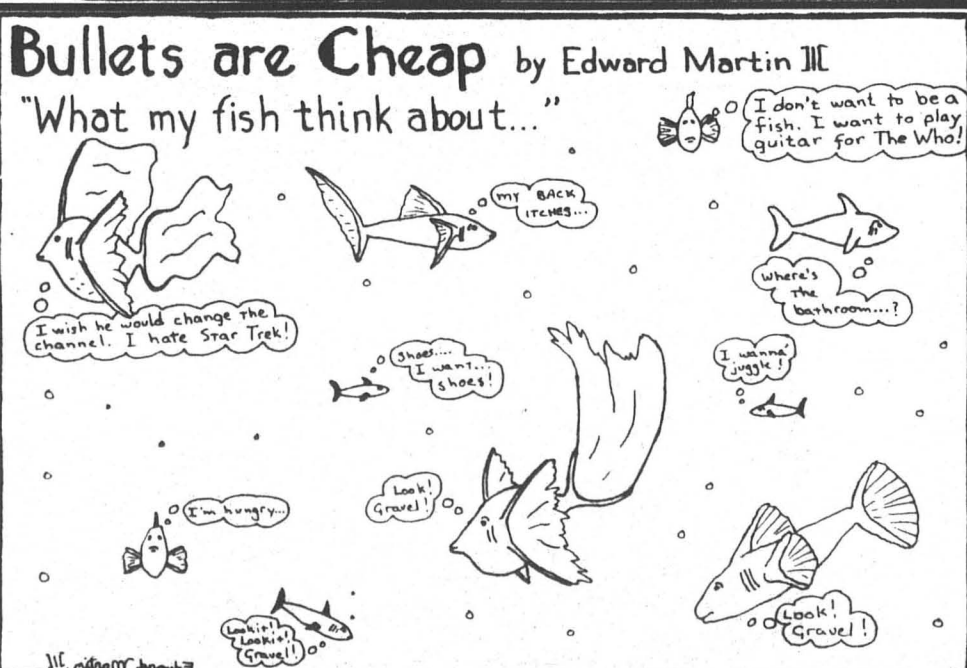 Bullets are Cheap by Edward Martin III
"What my fish think about..."
I don't want to be a
fish. I want to play
guitar for The Who!
My BACK
ITCHES...
I wish he would change The
channel. I hate Star Trek!
Where's
The
bathroom...?
Shoes....
I want...
shoes!
I wanna'
juggle!
I'm hungry...
Look!
Gravel!
Lookit!
Lookit!
Gravel!
Look!
Gravel!
Edward Martin III